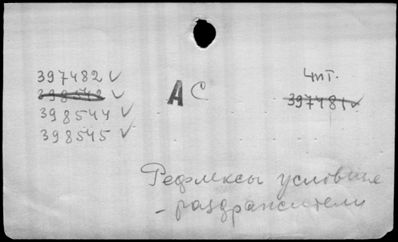 397482 ✓
398543 ✓
398544 ✓
398545 ✓
АС
чит.
397481 ✓
Рефлексы условные
- раздражители